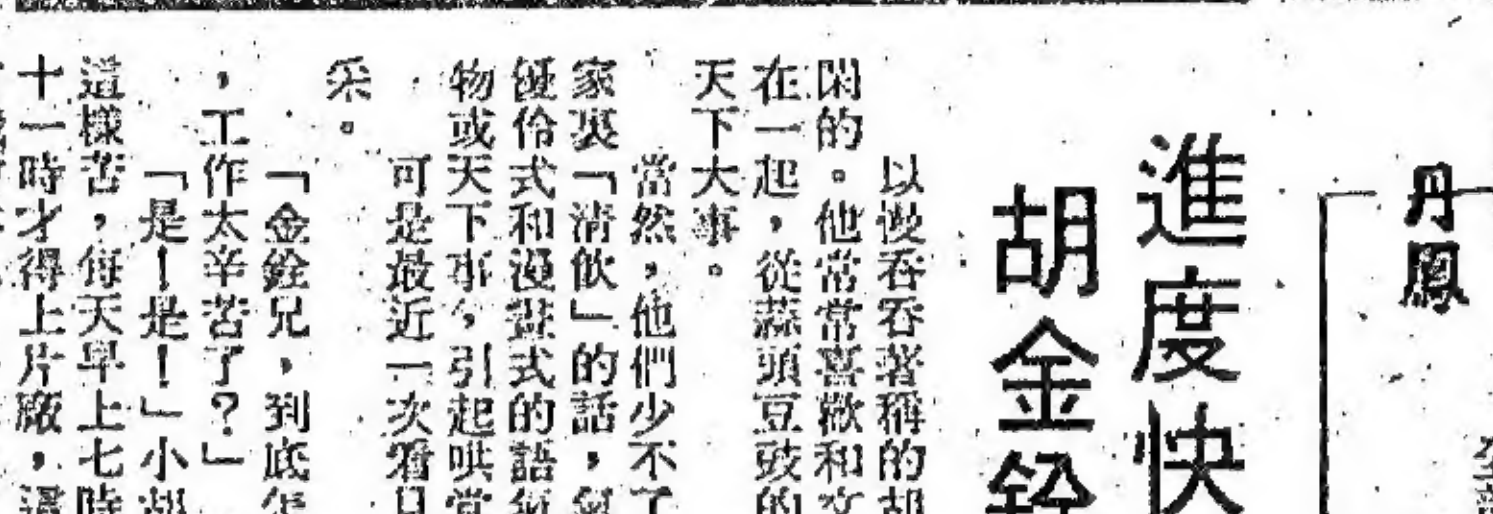 丹鳳
進度快
胡金銓
以慢吞吞著稱的胡
閑的。他常常喜歡和文
在一起,從蒜頭豆豉的
天下大事。
當然,他們少不了
家裏「清飲」的話,
優伶式和漫畫式的語氣
物或天下事,引起哄堂
可是最近一次看
采。
「金銓兄,到底怎
,工作太辛苦了?」
「是!是!」小胡
這樣苦,每天早上七時
十一時才得上片廠,這